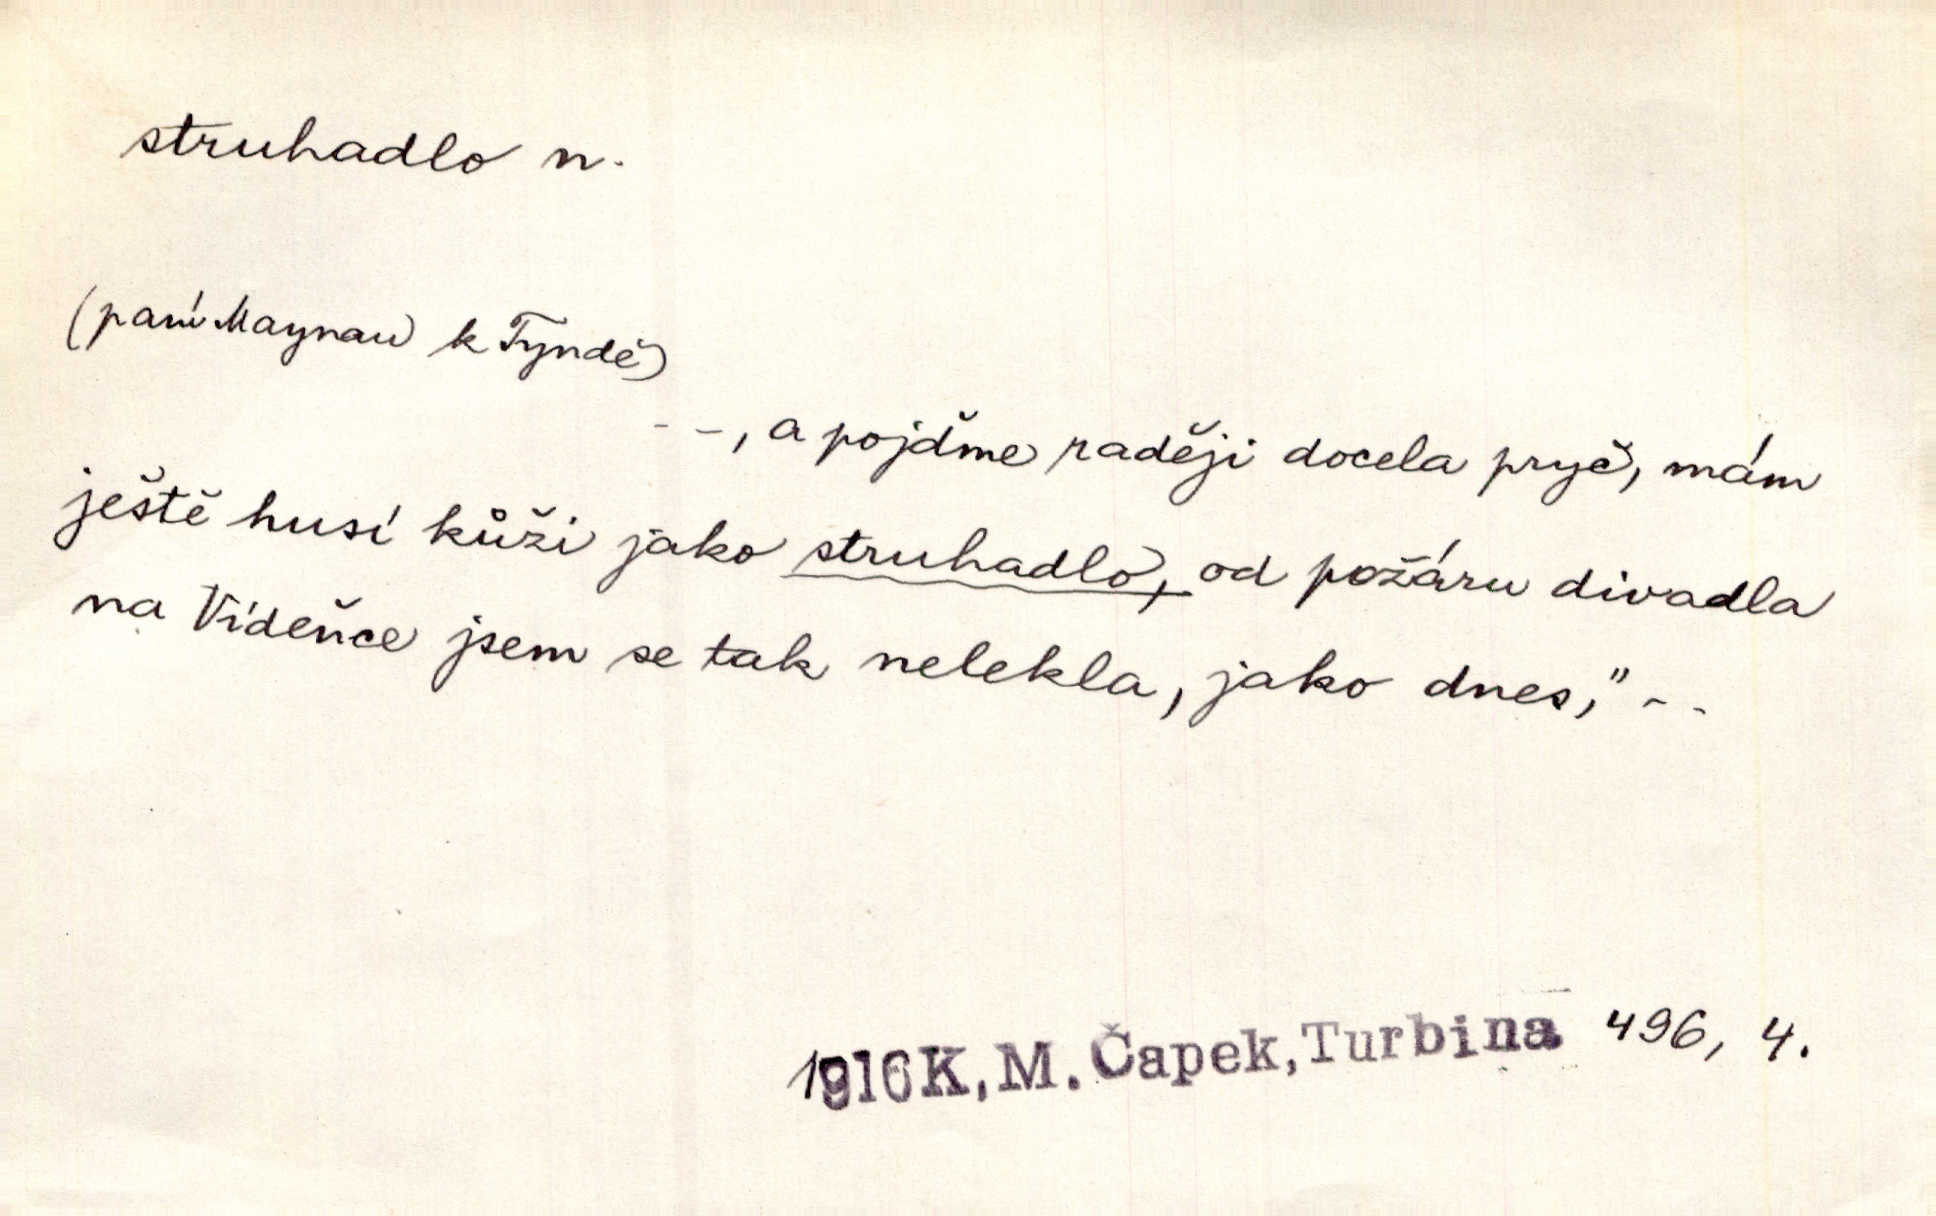 struhadlo n.
(paní Maynau k Tyndě)
- -, a pojďme raději docela pryč, mám
ještě husí kůži jako struhadlo, od požáru divadla
na Vídeňce jsem se tak nelekla, jako dnes," - -
1916 K, M. Čapek, Turbina 496, 4.